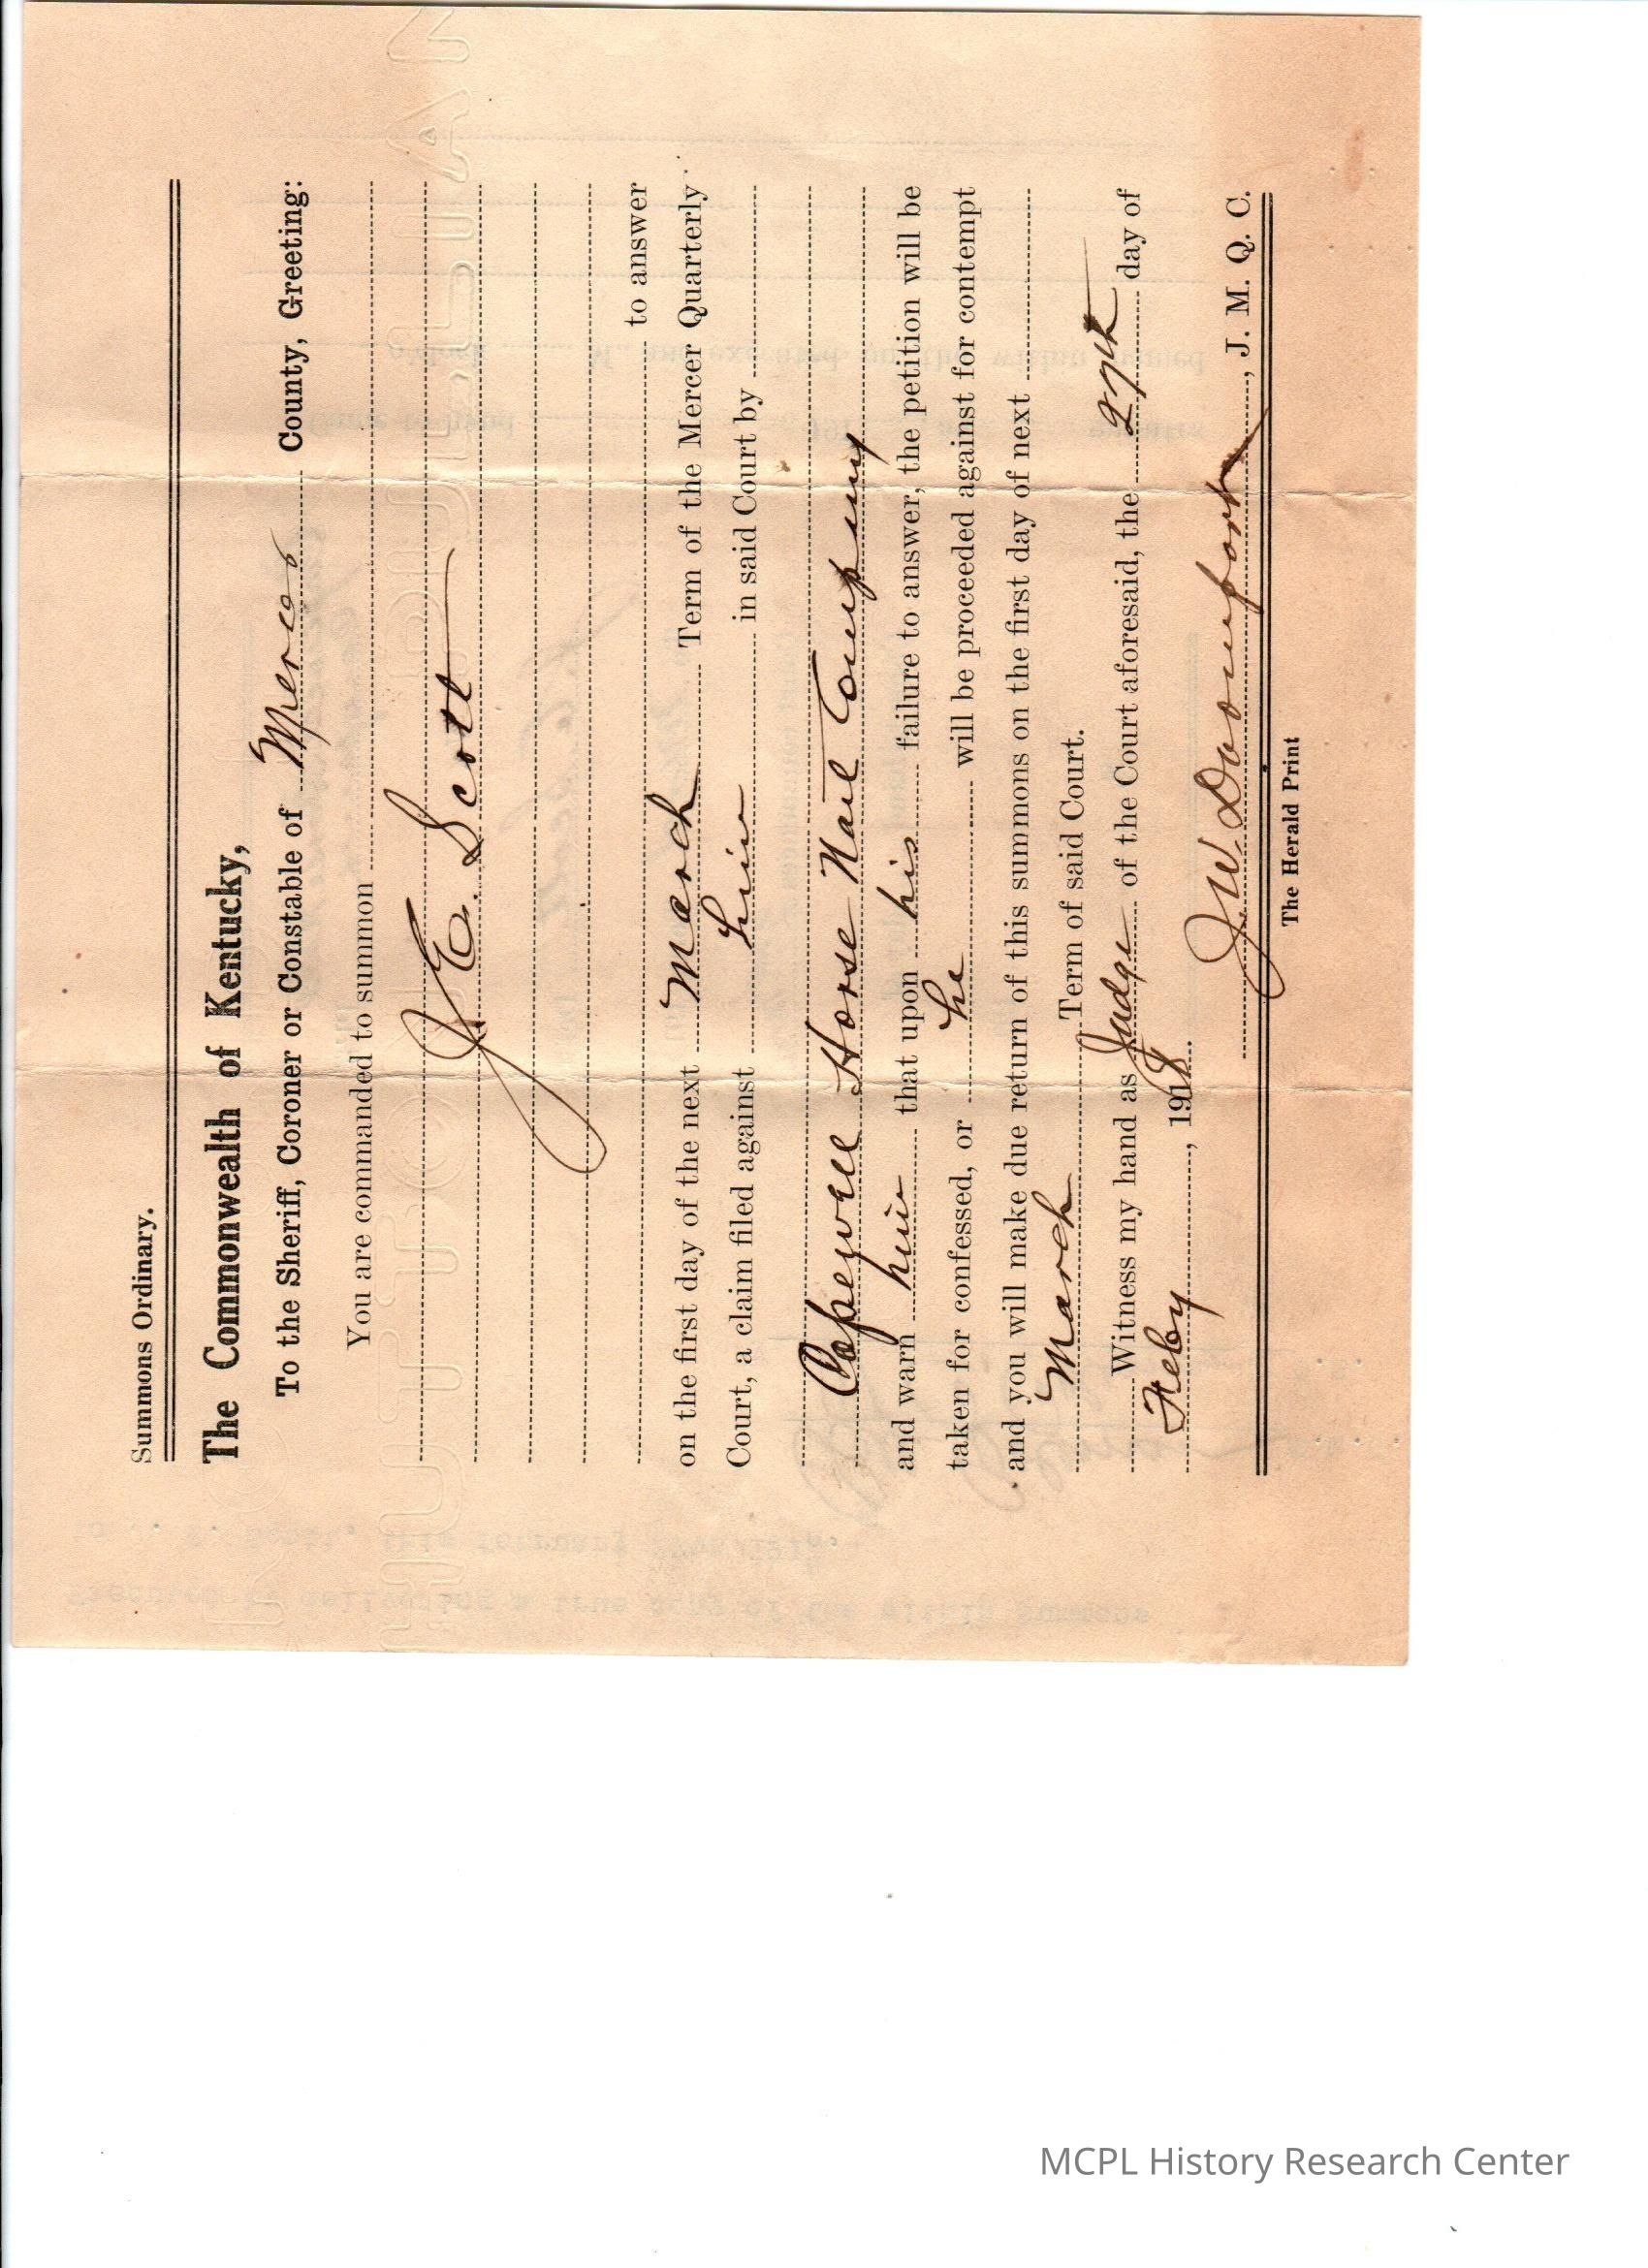 Summons Ordinary.
The Commonwealth of Kentucky,
To the Sheriff, Coroner or Constable of Mercer County, Greeting:
You are commanded to summon
J. E. Scott
to answer
on the first day of the next March Term of the Mercer Quarterly
Court, a claim filed against him in said Court by
Capewell Horse Nail Company
and warn him that upon his failure to answer, the petition will be
taken for confessed, or he will be proceeded against for contempt
and you will make due return of this summons on the first day of next
March Term of said Court.
Witness my hand as Judge of the Court aforesaid, the 27th day of
Feby, 1918.
J. W. , J. M. Q. C.
The Herald Print
MCPL History Research Center